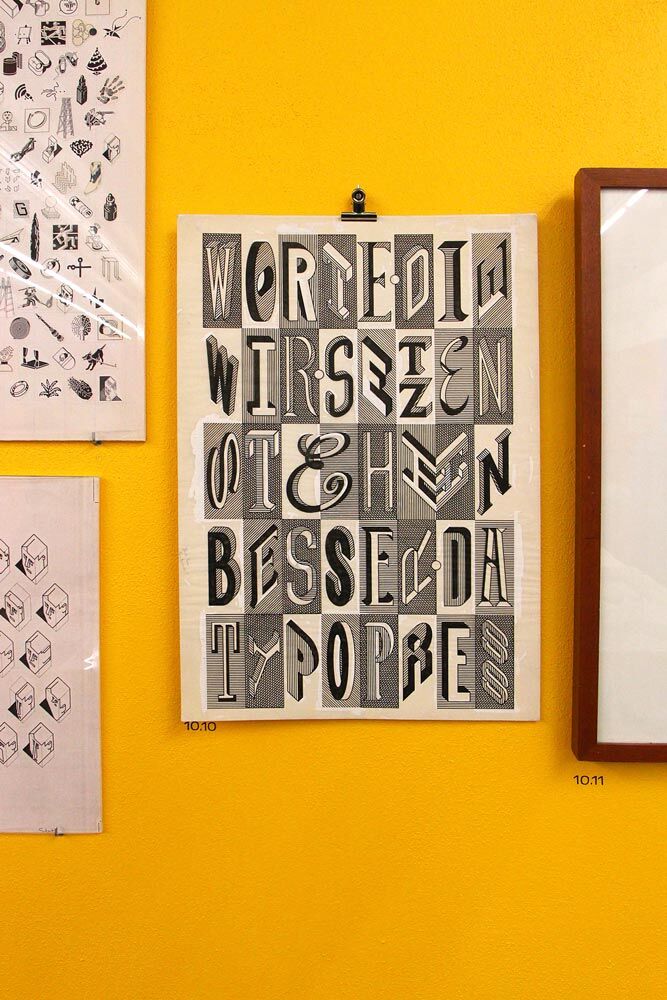 WORTE·DIE
WIR·SETZEN
STEHEN
BESSER·DA
TYPOPRESS
10.10
10.11